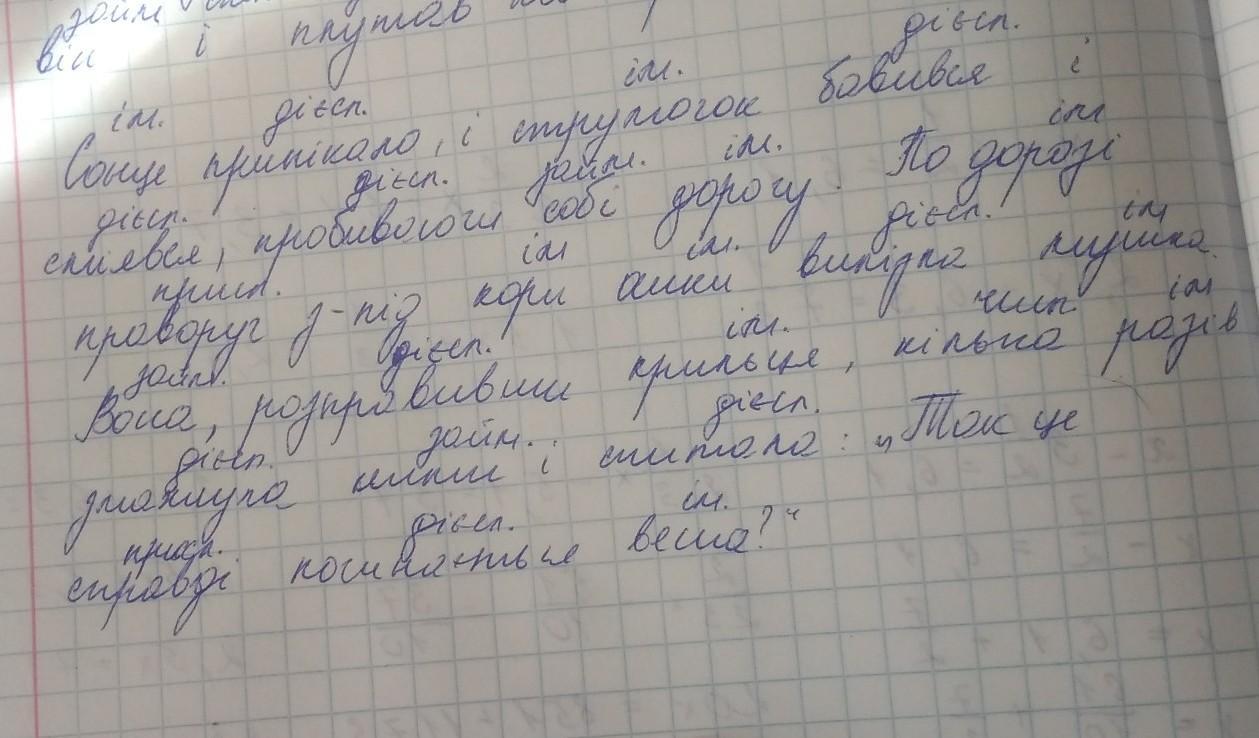 займ
він і плутав
дієсл.
ім. дієсл. ім.
Сонце припікало, і струмочок бавився і
дієсл. дієсл. займ. ім. ім
сміявся, пробиваючи собі дорогу. По дорозі
присл. ім ім. дієсл. ім
праворуч з-під кори сосни вилізла мушка.
займ. дієсл. ім. числ. ім
Вона, розправивши крильця, кілька разів
дієсл. займ. дієсл.
змахнула ними і спитала: „Так це
присл. дієсл. ім.
справді починається весна?"